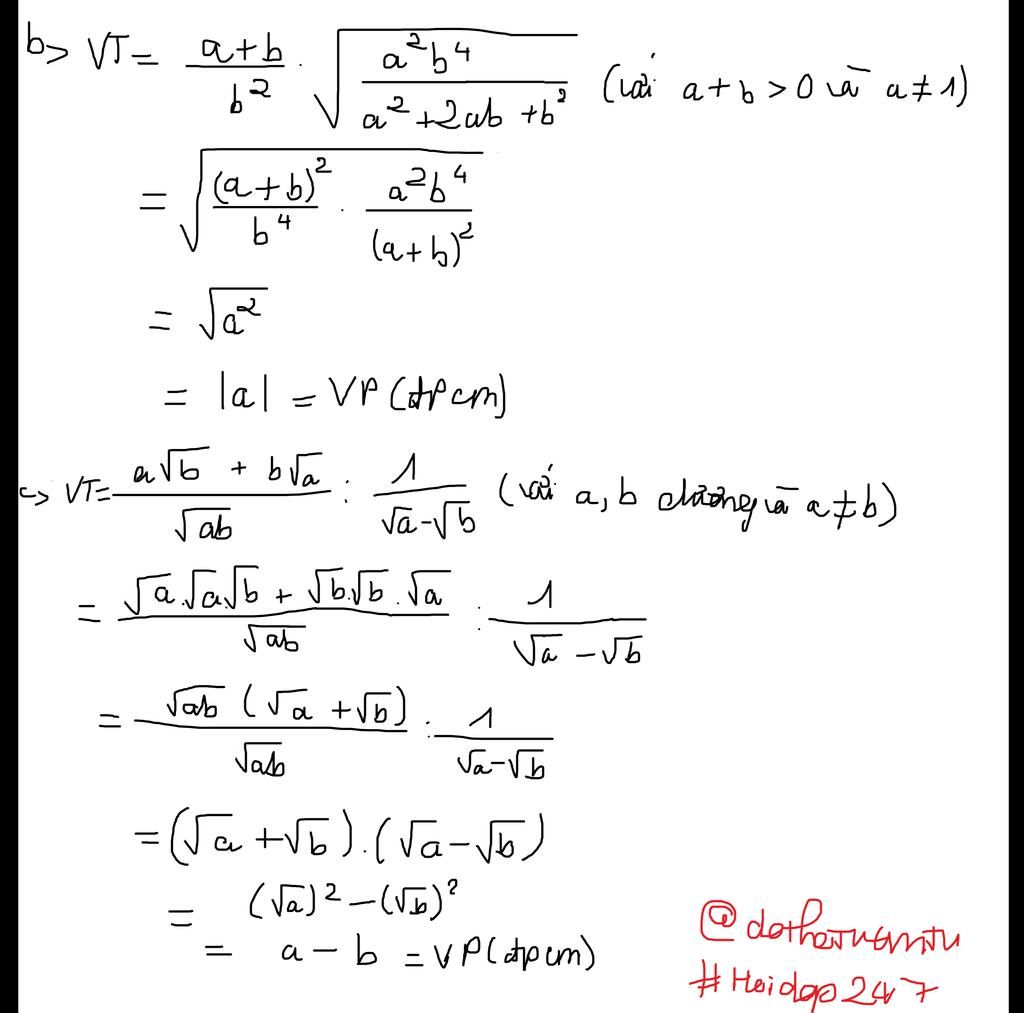 b> VT = \frac{a+b}{b^2} \cdot \sqrt{\frac{a^2b^4}{a^2+2ab+b^2}} (với a+b>0 và a≠1)
= \sqrt{\frac{(a+b)^2}{b^4} \cdot \frac{a^2b^4}{(a+b)^2}}
= \sqrt{a^2}
= |a| = VP (đpcm)
c> VT = \frac{a\sqrt{b} + b\sqrt{a}}{\sqrt{ab}} : \frac{1}{\sqrt{a}-\sqrt{b}} (với a, b dương và a≠b)
= \frac{\sqrt{a}.\sqrt{a}.\sqrt{b} + \sqrt{b}.\sqrt{b}.\sqrt{a}}{\sqrt{ab}} : \frac{1}{\sqrt{a}-\sqrt{b}}
= \frac{\sqrt{ab}(\sqrt{a}+\sqrt{b})}{\sqrt{ab}} : \frac{1}{\sqrt{a}-\sqrt{b}}
= (\sqrt{a}+\sqrt{b}).(\sqrt{a}-\sqrt{b})
= (\sqrt{a})^2-(\sqrt{b})^2
= a-b = VP (đpcm)
#Hoidap247